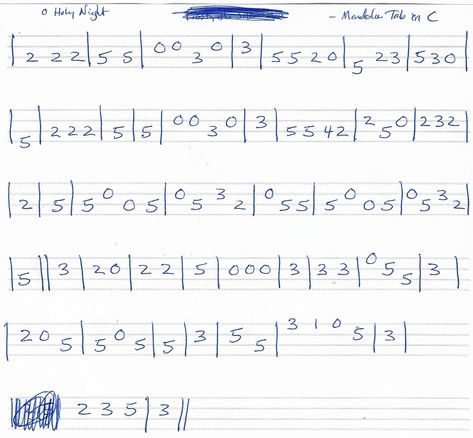 O Holy Night - Mandolin Tab in C
| 2 2 2 | 5 5 | 0 0 3 0 | 3 | 5 5 2 0 | 5 2 3 | 5 3 0 |
| 5 | 2 2 2 | 5 | 5 | 0 0 3 0 | 3 | 5 5 4 2 | 2 5 0 | 2 3 2 |
| 2 | 5 | 5 0 0 5 | 0 5 3 2 | 0 5 5 | 5 0 0 5 | 0 5 3 2 |
| 5 || 3 | 2 0 | 2 2 | 5 | 0 0 0 | 3 | 3 3 | 0 5 5 | 3 |
| 2 0 5 | 5 0 5 | 5 | 3 | 5 5 | 3 1 0 5 | 3 |
2 3 5 | 3 ||